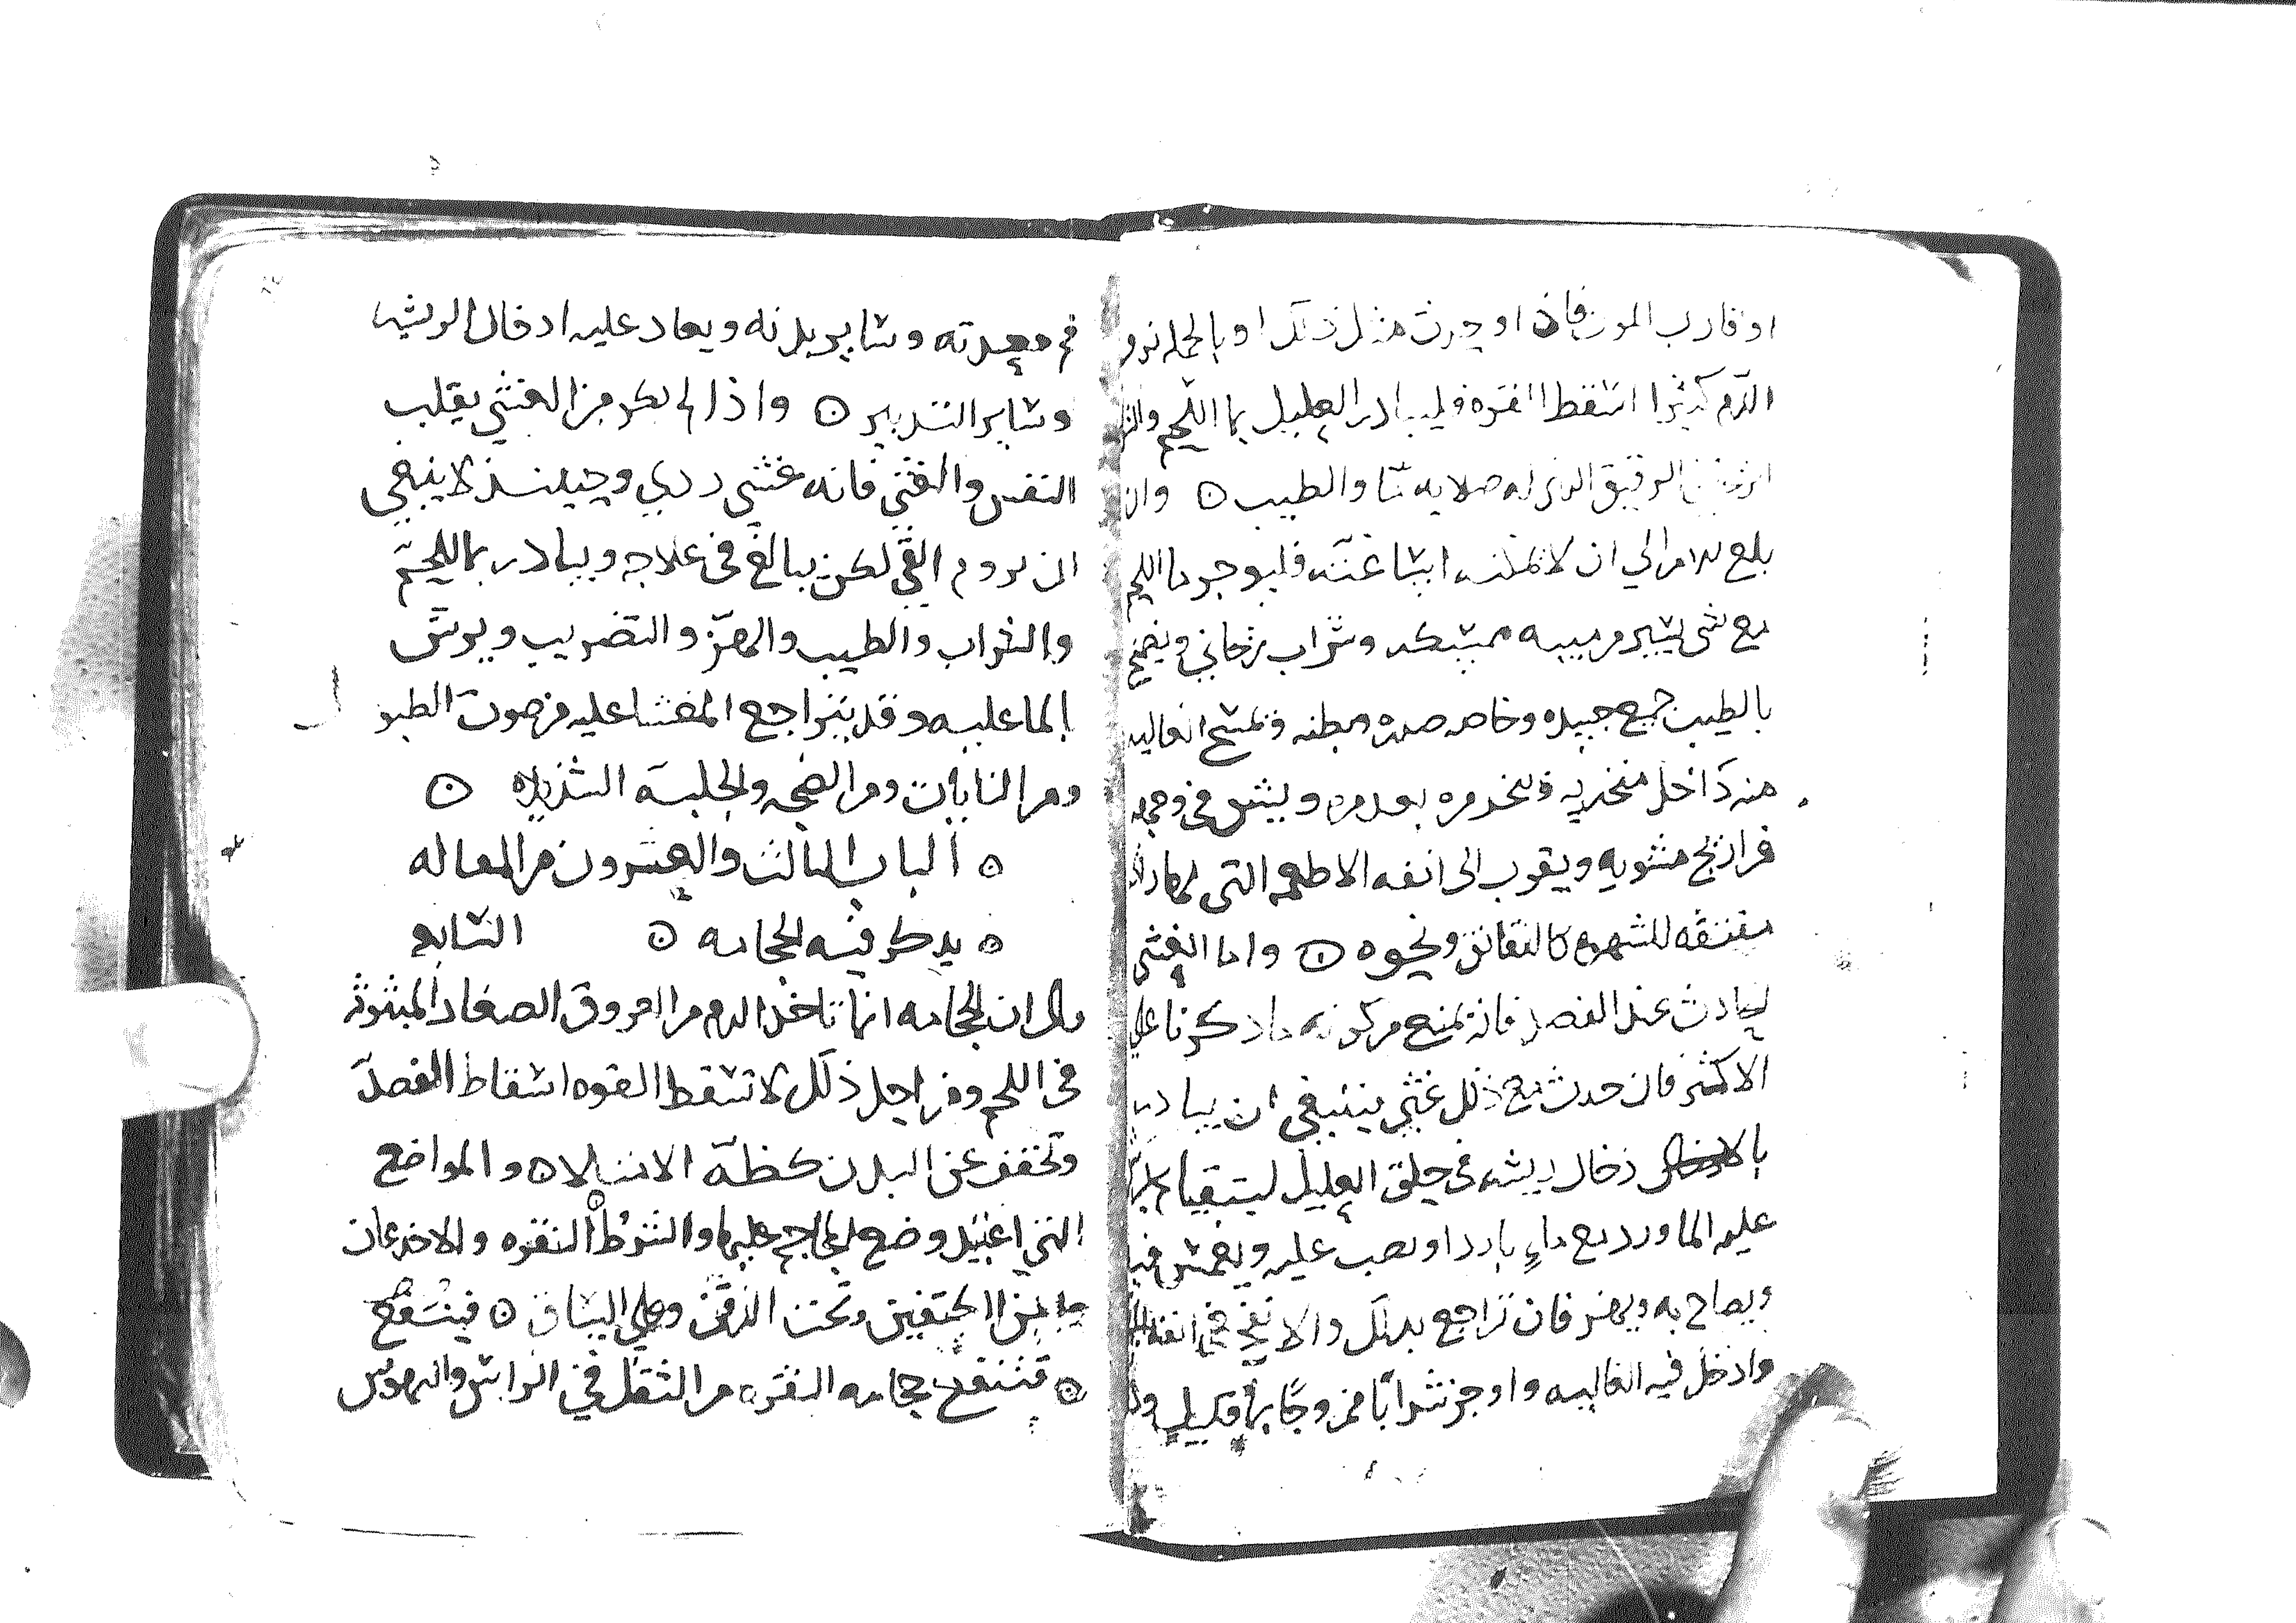 او قارب الموت فان اوجرت مثل ذلك او بالجمله نزو
الدم كثيرا اسقط القوه فليبادر العليل بما اللحم والشر
الرقيق الذي له صلابه ما والطيب ⊙ وان
بلغ الامر الي ان لا يمكنه اساغته فليوجر ما اللحم
مع شي يسير من ميبه ممسكه وشراب ريحاني ويضمخ
بالطيب جميع جسده وخاصه صدره وبطنه وتمسح الغاليه
منه داخل منخريه وتبخر مره بعد مره ويشق في وجهه
فراريج مشويه ويقرب الى انفه الاطعمه التي لها
مفتقه للشهوه كالنقانق ونحوه ⊙ واما الغشي
الحادث عند الفصد فانه يمنع من كونه ما ذكرنا علي
الاكثر فان حدث مع ذلك غشي ينبغي ان يبادر
دخال ريشه في حلق العليل ليتقيا
عليه الما ورد مع ماء باردا ويصب عليه
ويصاح به ويهز فان تراجع بذلك والا نفخ في انفه
وادخل فيه الغاليه واوجر شرابا ممزوجا
فم معدته وساير بدنه ويعاد عليه ادخال الريشه
وساير التدبير ⊙ واذا لم يكن من الغشي يقلب
النفس والقي فانه غشي ردي وحينئذ لا ينبغي
ان يروم القي لكن يبالغ في علاجه ويبادر بما اللحم
والشراب والطيب والهز والتضريب ويرش
الما عليه وقد يتراجع المغشا عليه من صوت الطبو
ومن النايات ومن الضجه والجلبه الشديده ⊙
⊙ الباب الثالث والعشرون من المقاله
السابعه ⊙ يذكر فيه الحجامه ⊙
قال ان الحجامه انما تاخذ الدم من العروق الصغار المبثوثه
في اللحم ومن اجل ذلك لا تسقط القوه اسقاط الفصد
وتخفف عن البدن كظه الامتلا ⊙ والمواضع
التي اعتيد وضع المحاجم عليها والشرط النقره والاخدعان
ما بين الكتفين وتحت الذقن وعلي الساق ⊙ فينتفع
⊙ فتنفع حجامه النقره من الثقل في الراس والرموس